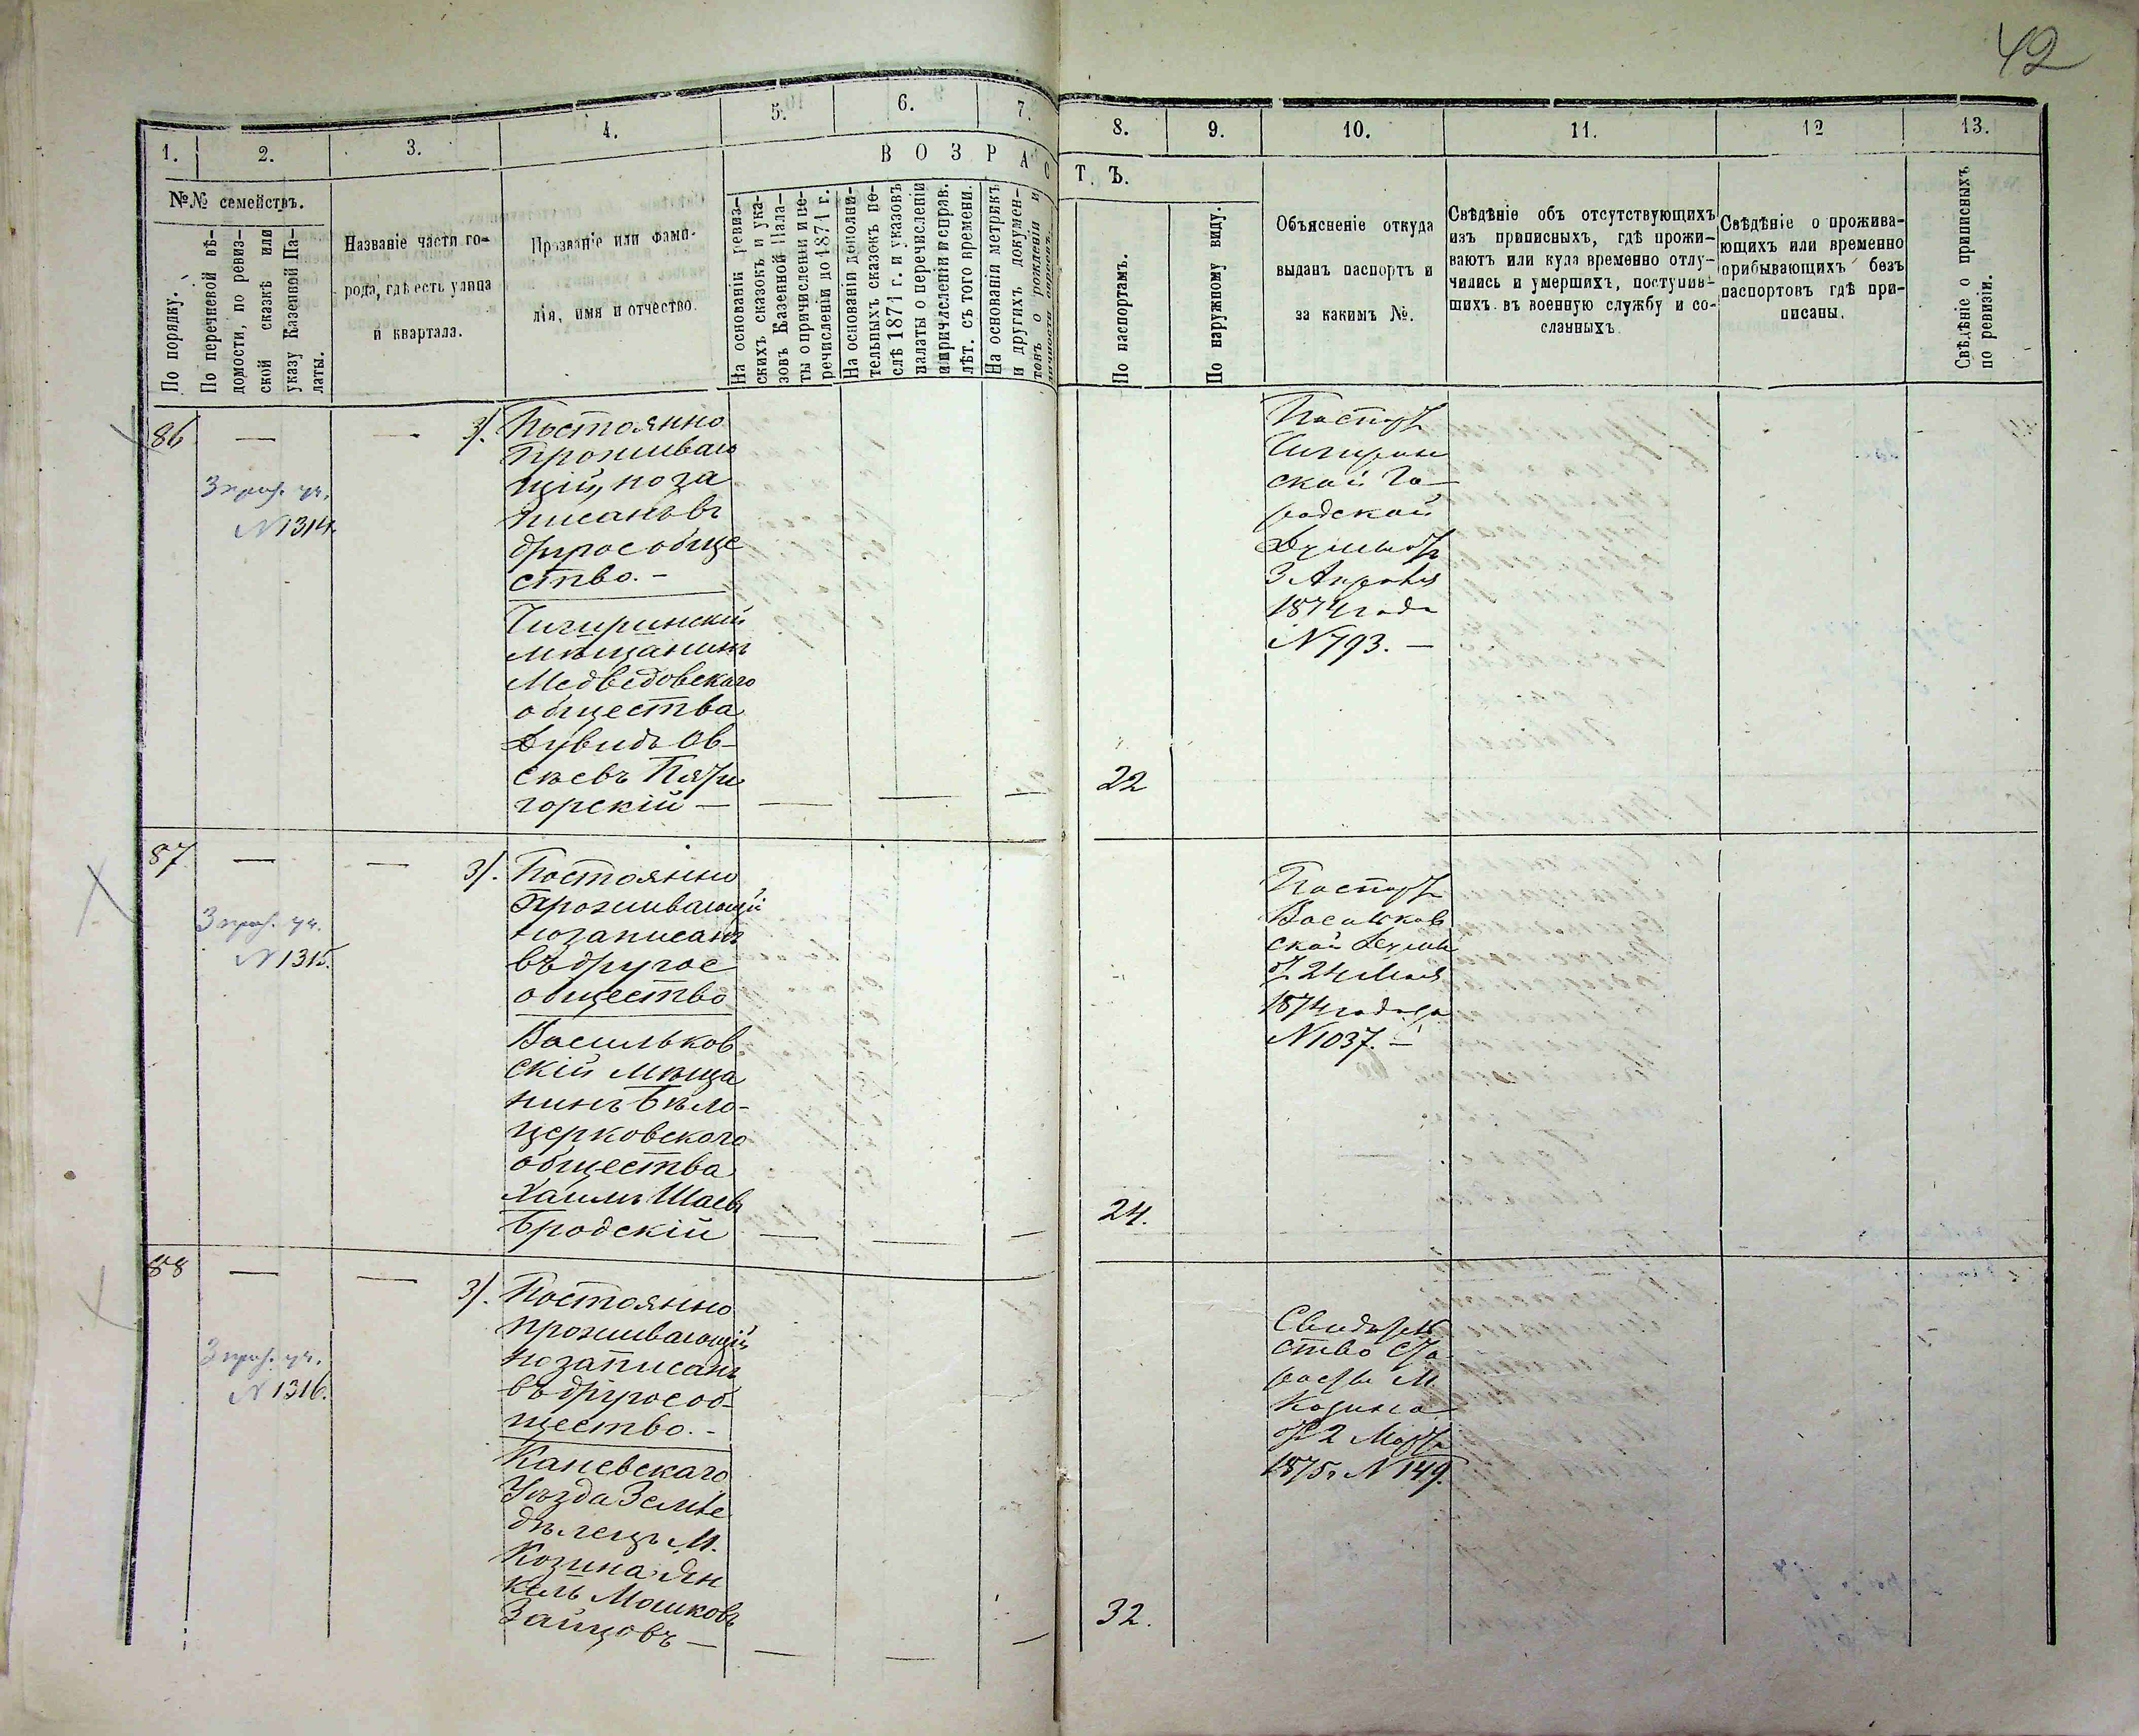 42
1.
2.
3.
4.
5.
6.
7.
8.
9.
10.
11.
12
13.
ВОЗРАС
Т Ъ.
№№ семействъ.
По порядку.
По перечневой вѣ-
домости, по ревиз-
ской сказкѣ или
указу Казенной Па-
латы.
Названіе части го-
рода, гдѣ есть улица
и квартала.
Прозваніе или фами-
лія, имя и отчество.
На основаніи ревиз-
скихъ сказокъ и ука-
зовъ Казенной Пала-
ты о причисленіи и пе-
речисленіи до 1871 г.
На основаніи дополни-
тельныхъ сказокъ по-
слѣ 1871 г. и указовъ
палаты о перечисленіи
и причисленіи и справ.
лѣт. съ того времени.
На основаніи метрикъ
и другихъ докумен-
товъ о рожденіи и
По паспортамъ.
По наружному виду.
Объясненіе откуда
выданъ паспортъ и
за какимъ №.
Свѣдѣніе объ отсутствующихъ
изъ приписныхъ, гдѣ прожи-
ваютъ или куда временно отлу-
чились и умершихъ, поступив-
шихъ въ военную службу и со-
сланныхъ
Свѣдѣніе о прожива-
ющихъ или временно
прибывающихъ безъ
паспортовъ гдѣ при-
писаны.
Свѣдѣніе о приписныхъ
по ревизіи.
86
3 приз. уч.
N 1314.
3).
Постоянно
проживаю
щій, но за
писанъ въ
другое обще
ство. –
Чигиринскій
мѣщанинъ
Медведовскаго
общества
Дувидъ Ов-
сѣевъ Пяти
горскій –
22
Паспортъ
Чигирин
ской Го-
родской
Думы отъ
3 Апрѣля
1874 года
N 793. –
87
3 приз. уч.
N 1315.
3).
Постоянно
проживающій
но записанъ
въ другое
общество
Васильков
скій мѣща
нинъ Бѣло-
церковского
общества
Хаимъ Шаевъ
Бродскій
24.
Паспортъ
Васильков
ской Думы
отъ 24 Мая
1874 года за
N 1037. –
88
3 приз. уч.
N 1316.
3).
Постоянно
проживающій
но записанъ
въ другое об-
щество. –
Каневскаго
Уѣзда Земле
дѣлецъ М.
Козина Ян
кель Мошковъ
Зайцовъ –
32.
Свидѣтель
ство Ста-
росты М.
Козина
отъ 2 Марта
1875 г. N 149.